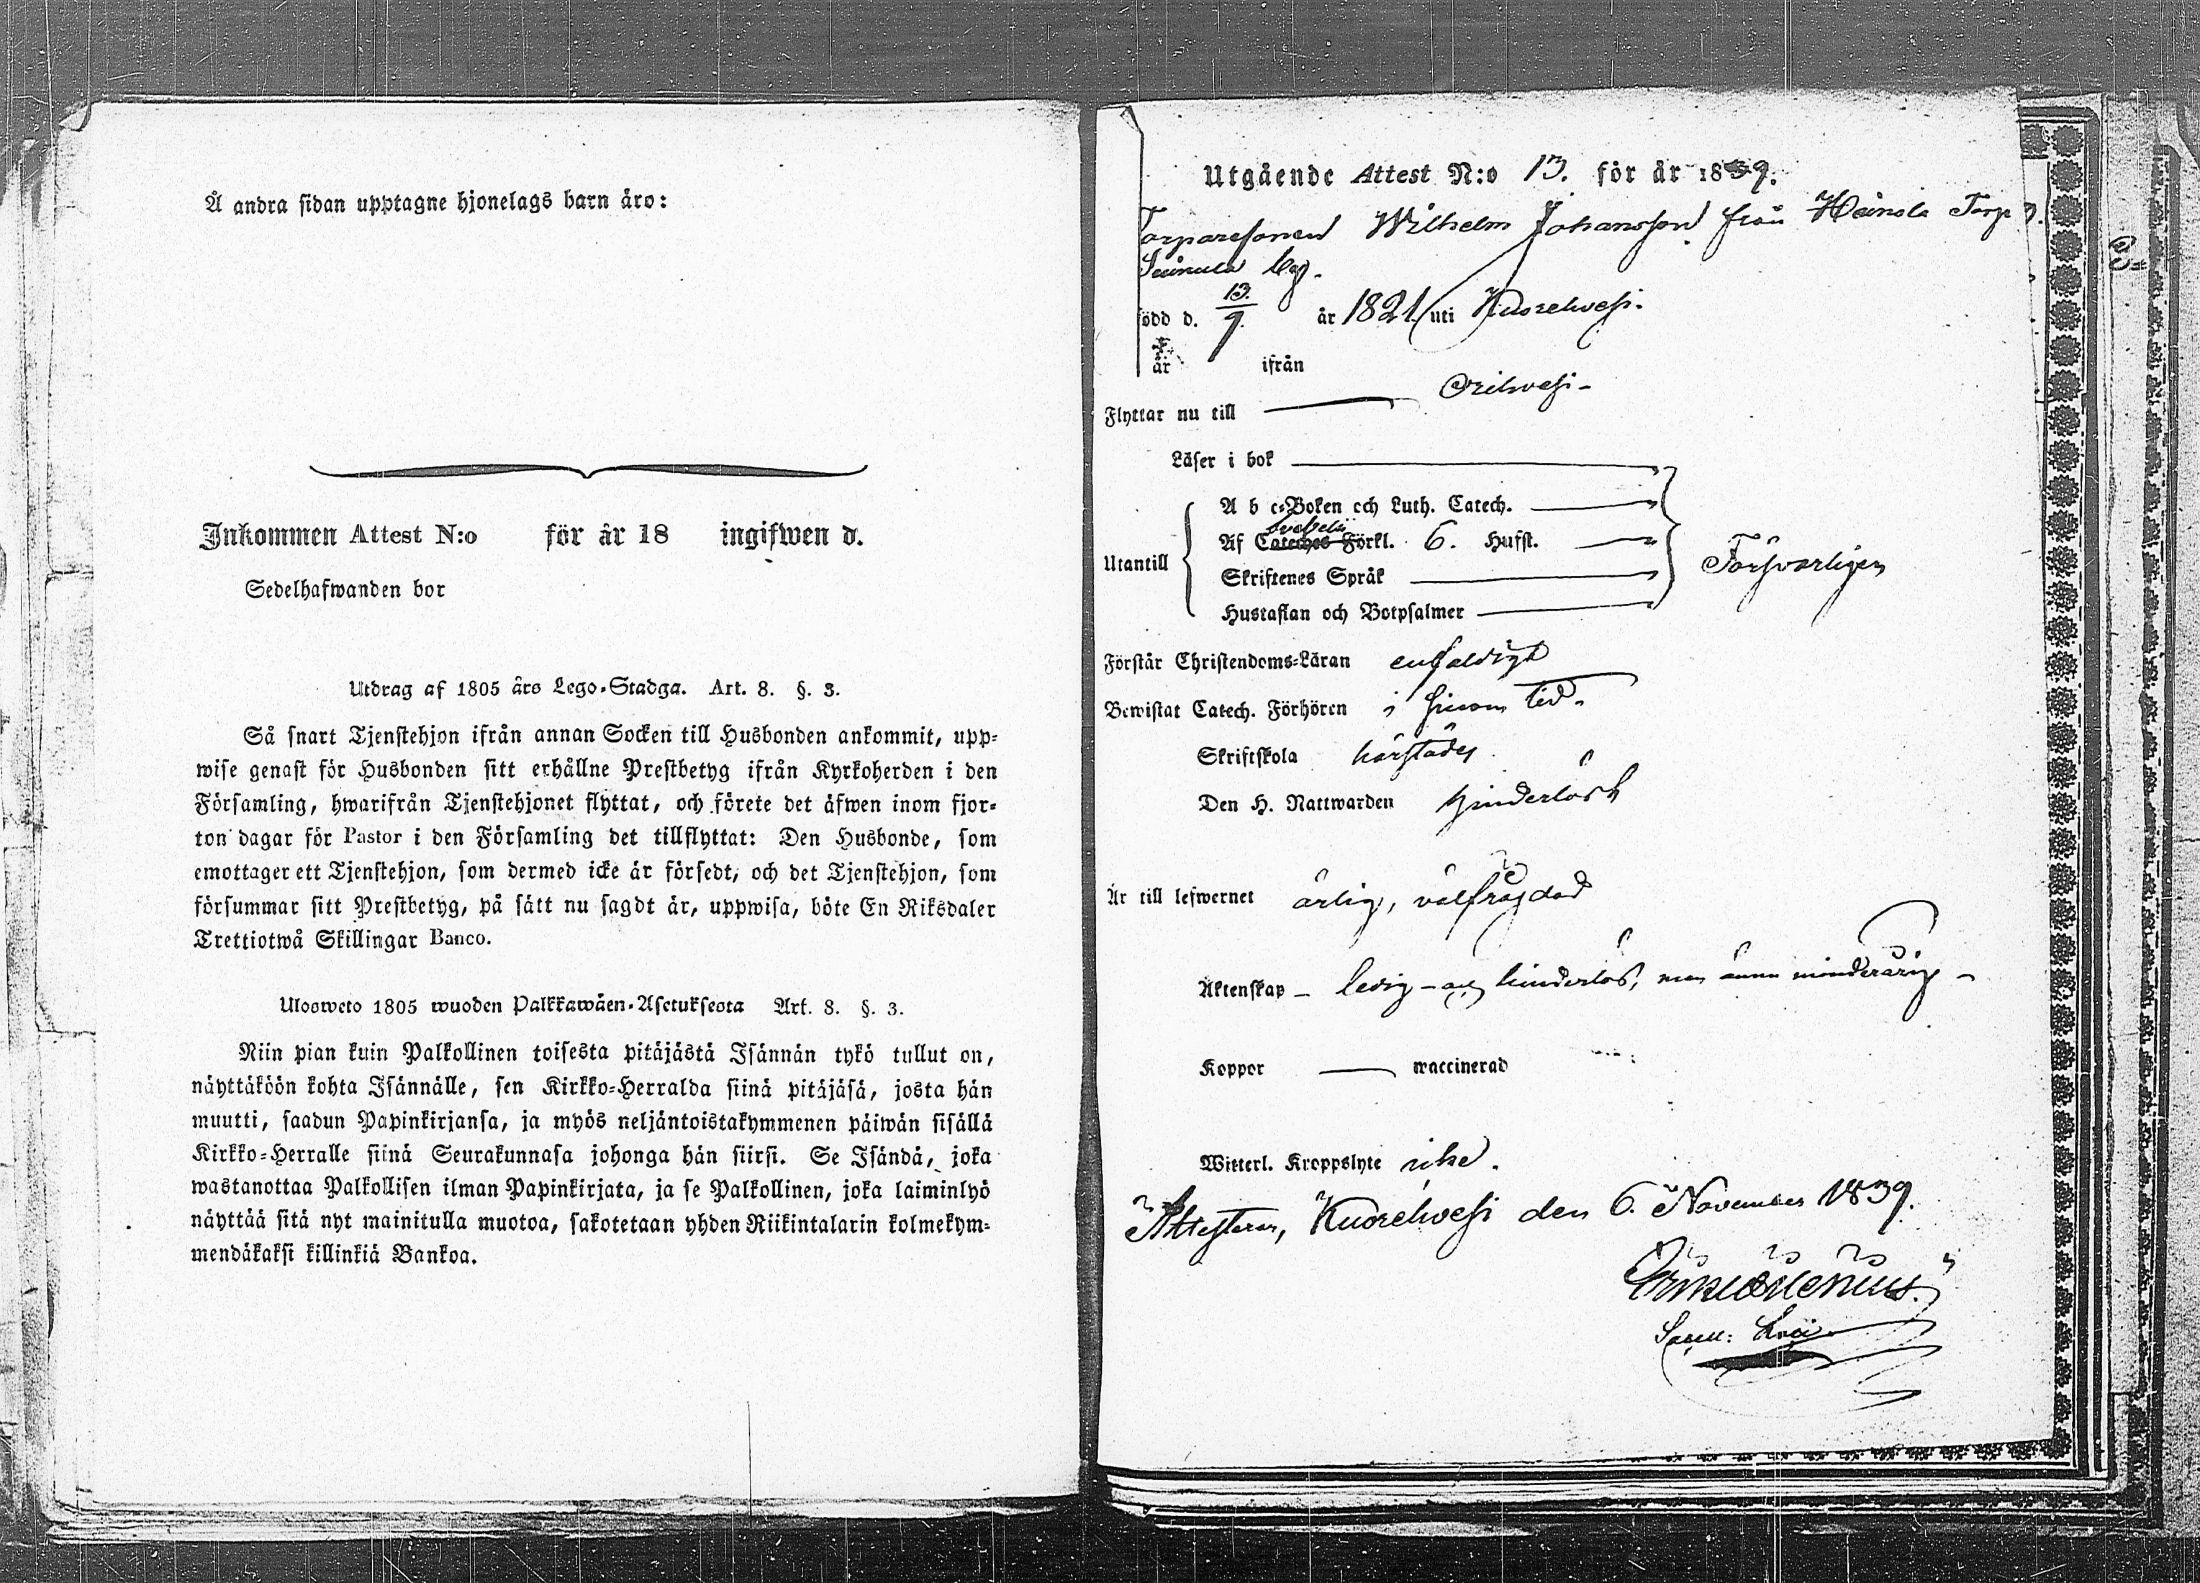 Å andra sidan upptagne hjonelags barn äro:
Inkommen Attest N:o för år 18 ingifwen d.
Sedelhafwanden bor
Utdrag af 1805 års Lego-Stadga. Art. 8. §. 3.
Så snart Tjenstehjon ifrån annan Socken till Husbonden ankommit, upp-
wise genast för Husbonden sitt erhållne Prestbetyg ifrån Kyrkoherden i den
Församling, hwarifrån Tjenstehjonet flyttat, och förete det äfwen inom fjor-
ton dagar för Pastor i den Församling det tillflyttat: Den Husbonde, som
emottager ett Tjenstehjon, som dermed icke är försedt, och det Tjenstehjon, som
försummar sitt Prestbetyg, på sätt nu sagdt är, uppwisa, böte En Riksdaler
Trettiotwå Skillingar Banco.
Ulosweto 1805 wuoden Palkkawäen-Asetuksesta Art. 8. §. 3.
Niin pian kuin Palkollinen toisesta pitäjästä Isännän tykö tullut on,
näyttäköön kohta Isännälle, sen Kirkko-Herralda siinä pitäjäsä, josta hän
muutti, saadun Papinkirjansa, ja myös neljäntoistakymmenen päiwän sisällä
Kirkko-Herralle siinä Seurakunnasa johonga hän siirsi. Se Isändä, joka
wastanottaa Palkollisen ilman Papinkirjata, ja se Palkollinen, joka laiminlyö
näyttää sitä nyt mainitulla muotoa, sakotetaan yhden Riikintalarin kolmekym-
mendäkaksi killinkiä Bankoa.
Utgående Attest N:o 13. för år 1839.
Torparesonen Wilhelm Johansson från Heinola Torp
by.
född d. 13/9 år 1821 uti Kuorehvesi.
år ifrån
Flyttar nu till Orihvesi
Läser i bok
A b c-Boken och Luth. Catech.
Svebelii
Utantill Af Cateches Förkl. 6. Hufst. Försvarligen
Skriftenes Språk
Hustaflan och Botpsalmer
Förstår Christendoms-Läran enfaldigt
Bewistat Catech. Förhören i sinom tid.
Skriftskola härstädes
Den H. Nattwarden hinderlöst
Är till lefwernet ärlig, välfrägdad
Äktenskap ledig och hinderlös, men ännu minderårig
Koppor waccinerad
Witterl. Kroppslyte icke.
Attesterar, Kuorehvesi den 6. November 1839.